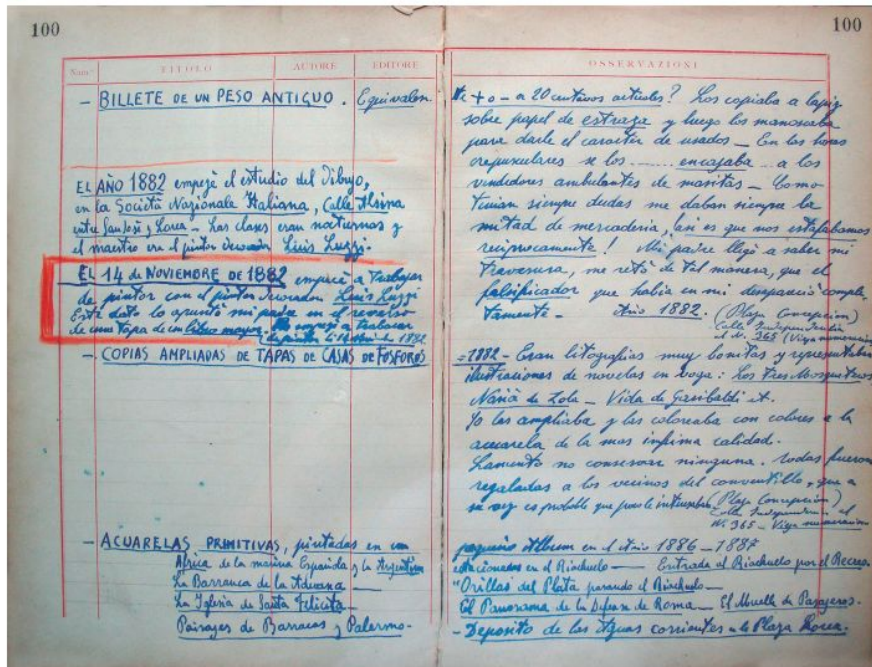 100
Num.° TITOLO AUTORE EDITORE
— BILLETE DE UN PESO ANTIGUO. Equivalen
EL AÑO 1882 empezé el estudio del Dibujo,
en la Società Nazionale Italiana, Calle Alsina
entre San José y Lorea — Las clases eran nocturnas y
el maestro era el pintor decorador Luis Luzzi.
EL 14 de NOVIEMBRE DE 1882 empecé a trabajar
de pintor con el pintor decorador Luis Luzzi
Este dato lo apuntó mi padre en el reverso
de una tapa de un libro mayor.
— COPIAS AMPLIADAS DE TAPAS DE CAJAS DE FÓSFOROS
— ACUARELAS PRIMITIVAS, pintadas en un
Africa de la marina Española y la Argentina
La Barranca de la Aduana
La Iglesia de Santa Felicita —
Paisajes de Barracas y Palermo —
100
OSSERVAZIONI
te + o — a 20 centavos actuales? Los copiaba a lapiz
sobre papel de estraza y luego los manoseaba
para darle el caracter de usados — En las horas
crepusculares se los ...... encajaba .. a los
vendedores ambulantes de masitas — Como
tenian siempre dudas me daban siempre la
mitad de mercaderia, asi es que nos estafabamos
reciprocamente! Mi padre llegó a saber mi
travesura, me retó de tal manera, que el
falsificador que habia en mi desapareció comple-
tamente — Año 1882. (Plaza Concepcion)
Calle Independencia
al N. 365 (Vieja numeracion
=1882 — Eran litografias muy bonitas y representaban
ilustraciones de novelas en voga: Los Tres Mosqueteros
Naná de Zola — Vida de Garibaldi et.
Yo las ampliaba y las coloreaba con colores a la
acuarela de la mas infima calidad.
Lamento no conservar ninguna. Todas fueron
regaladas a los vecinos del conventillo, que a
su vez es probable que (Plaza Concepcion)
Calle Independencia al
N. 365 — Vieja numeracion
pequeño Album en el Año 1886 — 1887
estacionados en el Riachuelo — Entrada al Riachuelo por el Recreo.
"Orillas del Plata pasando el Riachuelo —
El Panorama de la Defensa de Roma — El Muelle de Pasajeros.
— Deposito de las Aguas corrientes — de la Plaza Lorea.